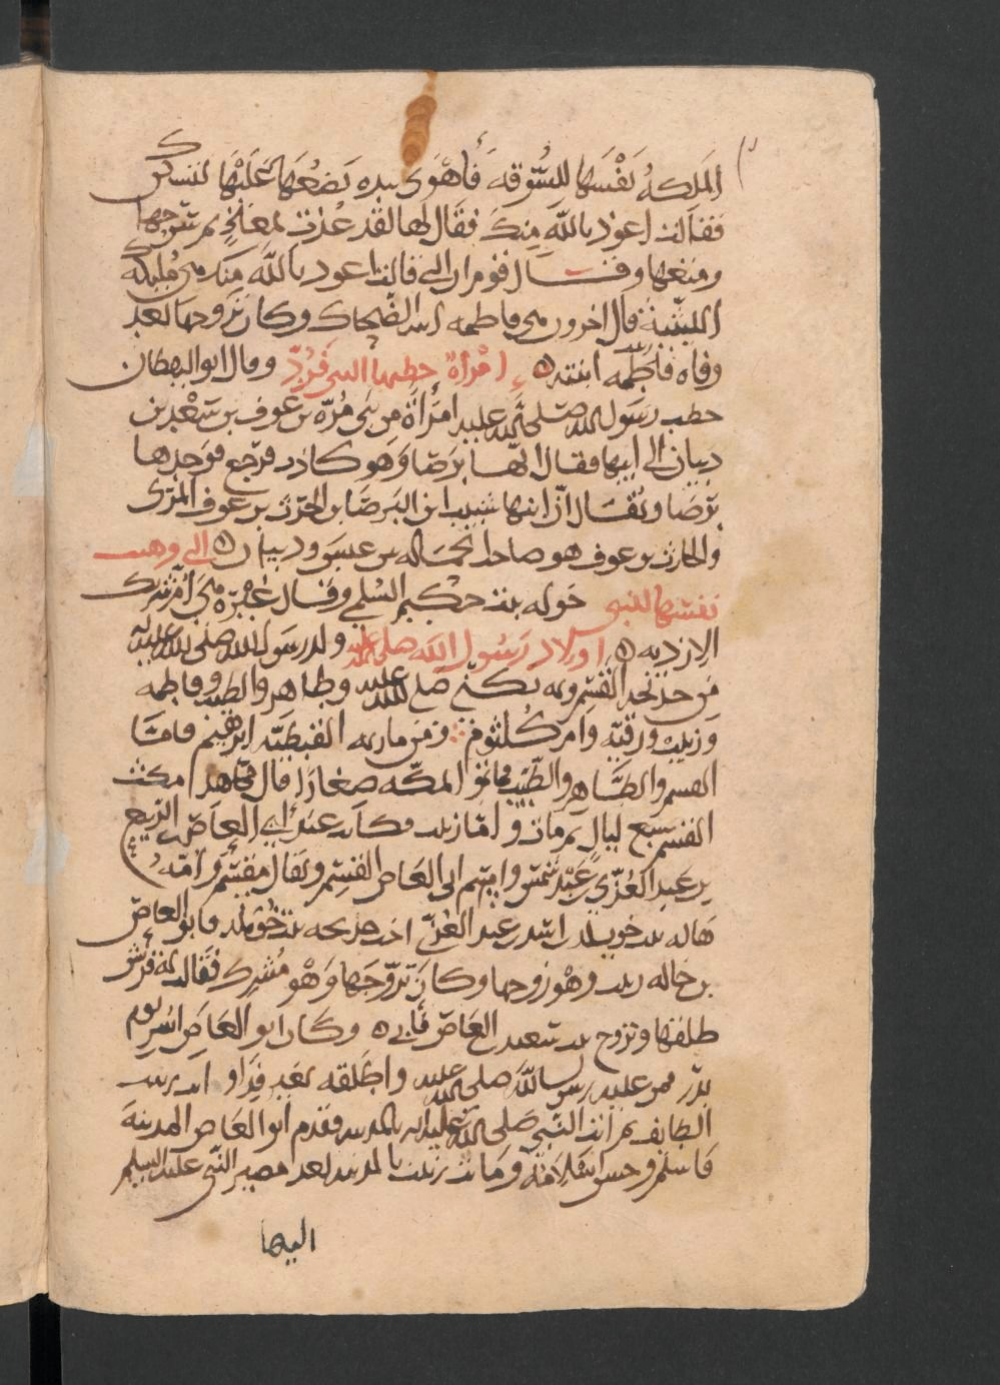 الملكة نَفْسَها للسُّوقة فأهْوَى بيده يَضعُهَا عَلَيْهَا لتسكن
فقالت اعوذ بالله مِنكَ فقَال لها لقد عُذت بمعاذٍ ثم سَرّحها
ومتعها وقــال قوم ان التى قالت اعوذ بالله منك هى مُليكة
الليثية قال اخرون هى فاطمه ابنة الضحاك وكان تزوجها بعد
وفاة فاطمه ابنته ه امرأة خطبها النبي فرُدّ وقال ابو اليقظان
خطب رسول الله صلى الله عليه امرأة من بَنى مُرّه بن عوف بن سَعْد بن
ذبيان الى ابيها فقال انّ بها بَرَصًا وَهو كاذب فرَجع فوَجدها
بَرْصَا ويُقَال انّ ابنها شبيب ابن البَرصَا بن الحرث بن عوف المرّى
والحارث بن عوف هو صاحب الحمالة بين عبس وذبيان ه التي وهبت
نفسَها للنبي خوله بنت حكيم السُلمى وقال غَيْرُه هى اُمّ شريك
الازديه ه اولاد رَسُول الله صلى الله عليه ولد رسول الله صلى الله عليه
من خديجة القسم وبه يكنى صلى الله عليه وطاهر والطيب وفاطمه
وَزينب ورقيّه وامّ كُلثوم ومن ماريه القبطيّه ابرهيم فامّا
القسم والطّاهر والطّيّب فماتوا بمكّه صغارًا قال مجاهد مكث
القسم سَبع ليالٍ ثم مات وامّا زينب فكانت عند ابي العاص بن الربيع
بن عبد العُزّى بن عَبْد شمس واسم ابى العاص القسِم ويقال مِقْسَم وامّه
هَاله بنت خويلد بن اسَد بن عبد العُزّى اخت خديجه بنت خُوَيلد فابو العاص
بن خاله زينب وهْو زوجها وكان تزوّجَهَا وَهْو مُشرك فقالت له قريش
طلقها وتزوج بنت سعيد بن العَاصّ فأبى ه وكان ابو العَاصِ اُسر يوم
بدرٍ فمن عليه رسول الله صلى الله عليه واطلقه بغير فِدآءٍ
الطايف ثم اتت النّبيّ صَلى الله عليه بالمدينه فقدم ابو العَاص المدينة
فاسلم وحسن اسلامُه ومَاتت زينب بالمدينه بعد مصير النّبى عليه السلم
اليها